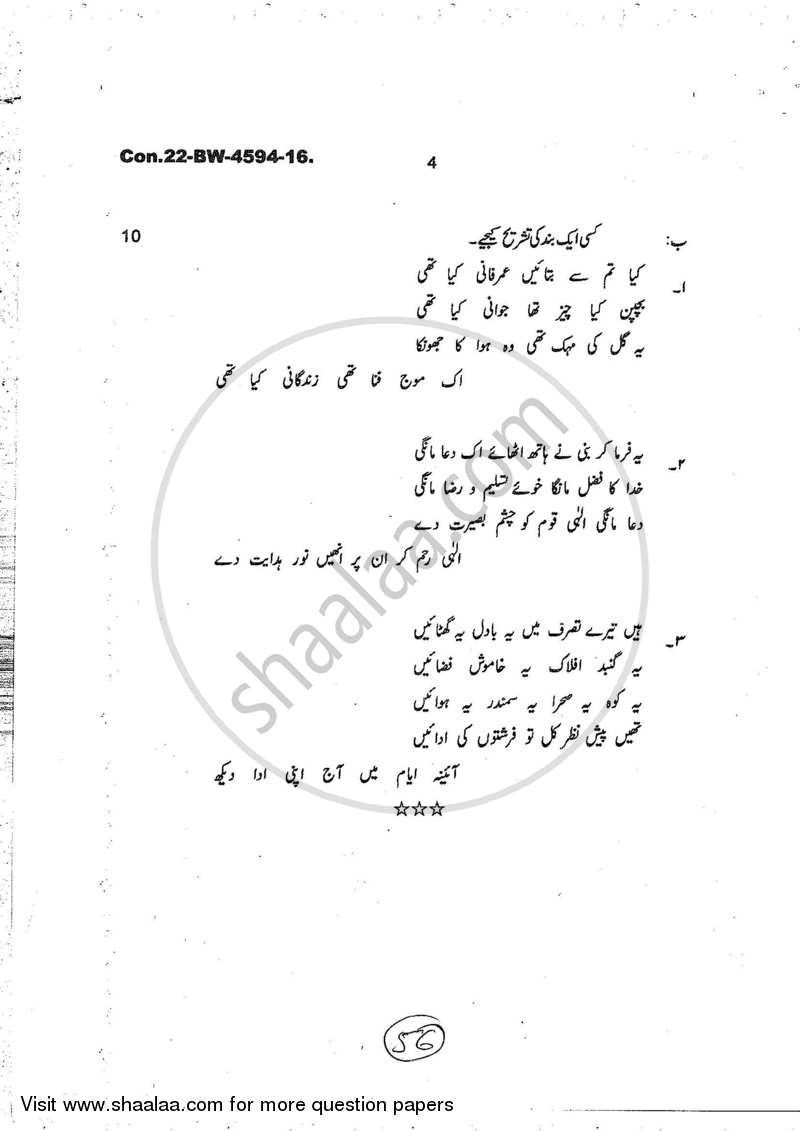 Con.22-BW-4594-16.
4
ب: کسی ایک بند کی تشریح کیجیے۔ 10
۱۔ کیا تم سے بتائیں عمرفانی کیا تھی
بچپن کیا چیز تھا جوانی کیا تھی
یہ گل کی مہک تھی وہ ہوا کا جھونکا
اک موج فنا تھی زندگانی کیا تھی
۲۔ یہ فرما کر نبی نے ہاتھ اٹھائے اک دعا مانگی
خدا کا فضل مانگا خوئے تسلیم و رضا مانگی
دعا مانگی الٰہی قوم کو چشم بصیرت دے
الٰہی رحم کر ان پر انھیں نور ہدایت دے
۳۔ ہیں تیرے تصرف میں یہ بادل یہ گھٹائیں
یہ گنبد افلاک یہ خاموش فضائیں
یہ کوہ یہ صحرا یہ سمندر یہ ہوائیں
تھیں پیش نظر کل تو فرشتوں کی ادائیں
آئینہ ایام میں آج اپنی ادا دیکھ
☆☆☆
shaalaa.com
56
Visit www.shaalaa.com for more question papers